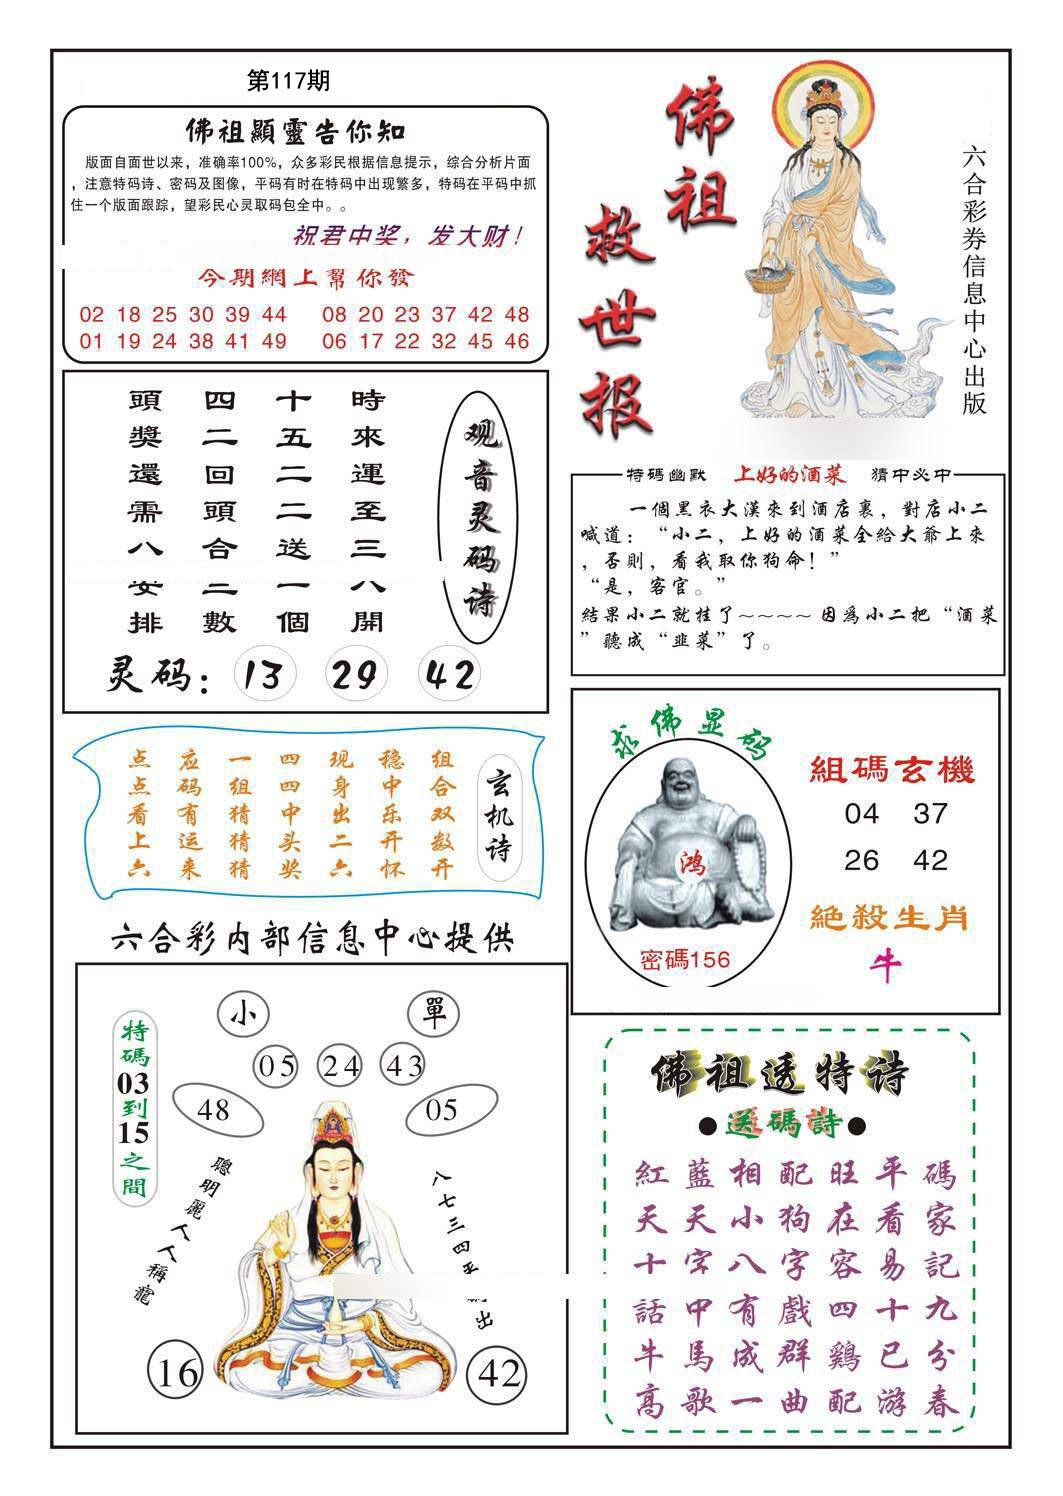 第117期
佛祖顯靈告你知
版面自面世以来，准确率100%，众多彩民根据信息提示，综合分析片面
，注意特码诗、密码及图像，平码有时在特码中出现繁多，特码在平码中抓
住一个版面跟踪，望彩民心灵取码包全中。。
祝君中奖，发大财！
今期網上幫你發
02 18 25 30 39 44 08 20 23 37 42 48
01 19 24 38 41 49 06 17 22 32 45 46
佛祖
救世报
六合彩券信息中心出版
時來運至三八開
十五二二送一個
四二回頭合二數
頭獎還需八安排
观音灵码诗
灵码：13 29 42
特碼幽默 上好的酒菜 猜中必中
一個黑衣大漢來到酒店裏，對店小二
喊道：“小二，上好的酒菜全給大爺上來
，否則，看我取你狗命！”
“是，客官。”
結果小二就挂了~~~~因爲小二把“酒菜
”聽成“韭菜”了。
玄机诗
组合双数开
稳中乐开怀
现身出二六
四四中头奖
一组猜猜猜
应码有运来
点点看上六
求佛显码
鸿
密碼156
組碼玄機
04 37
26 42
絕殺生肖
牛
六合彩内部信息中心提供
小 單
05 24 43
48 05
特碼03到15之間
聰明麗人人稱寵
八七三四
出
16 42
佛祖透特诗
●送碼詩●
紅藍相配旺平碼
天天小狗在看家
十字八字容易記
話中有戲四十九
牛馬成群鷄已分
高歌一曲配游春